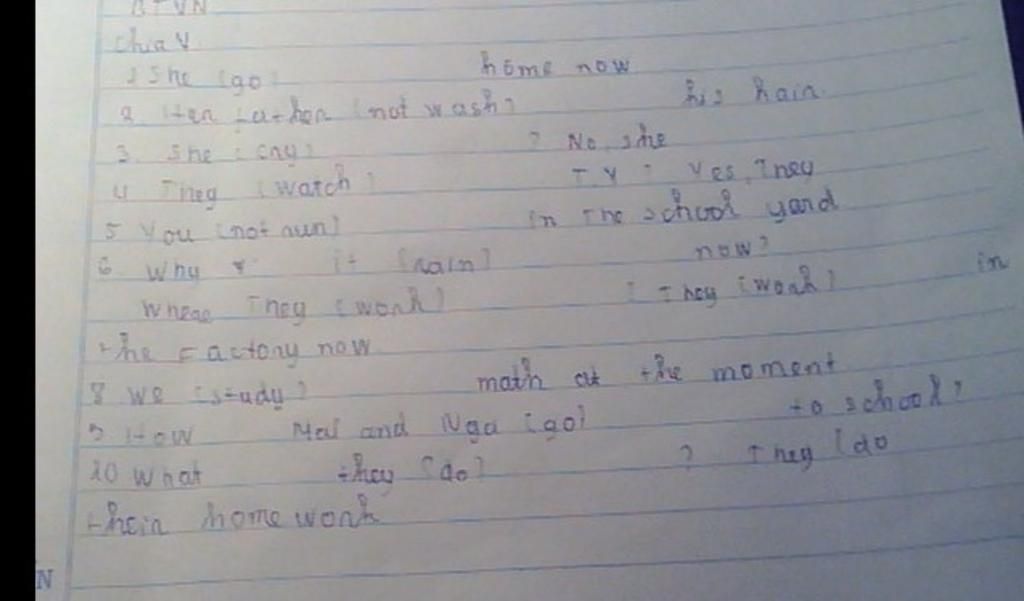 BTVN
chia V
1 She (go) home now
2 Her father (not wash) his hair.
3. She (cry) ? No, she
4 They (watch) T.V ? Yes, They
5 You (not run) in The school yard
6 Why it (rain) now?
Where They (work) ? They (work) in
the Factory now
8 We (study) math at the moment
9 How Mai and Nga (go) to school?
10 What they (do) ? They (do
their home work
N